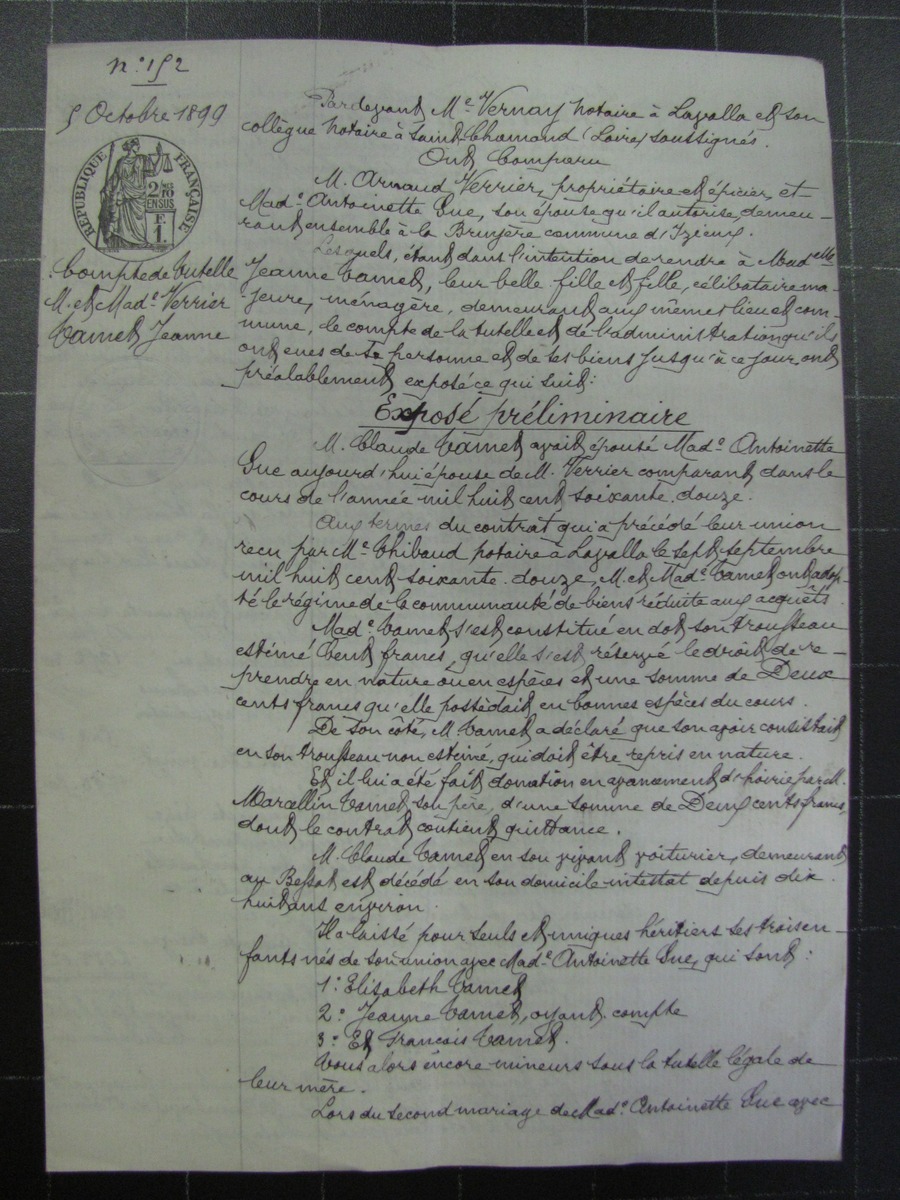 n° 152
5 Octobre 1899
RÉPUBLIQUE FRANÇAISE
2/10 EN SUS
F.
1.
Compte de tutelle
M. et Mad.e Verrier
Tamet Jeanne
Pardevant Me Vernay notaire à Lavalla et son
collègue notaire à Saint-Chamond (Loire) soussignés.
Ont Comparu
M. Arnaud Verrier, propriétaire et épicier, et
Mad.e Antoinette Duc, son épouse qu'il autorise, demeu-
rant ensemble à la Bruyère commune d'Izieux.
Lesquels, étant dans l'intention de rendre à Mad.elle
Jeanne Tamet, leur belle-fille et fille, célibataire ma-
jeure, ménagère, demeurant aux mêmes lieu et com-
mune, le compte de la tutelle et de l'administration qu'ils
ont eues de sa personne et de ses biens jusqu'à ce jour, ont
préalablement exposé ce qui suit:
Exposé préliminaire
M. Claude Tamet avait épousé Mad.e Antoinette
Duc aujourd'hui épouse de M. Verrier comparant, dans le
cours de l'année mil huit cent soixante-douze.
Aux termes du contrat qui a précédé leur union
reçu par Me Thibaud notaire à Lavalla le sept septembre
mil huit cent soixante-douze, M. et Mad.e Tamet ont adop-
té le régime de la communauté de biens réduite aux acquêts.
Mad.e Tamet s'est constitué en dot son trousseau
estimé Cent francs, qu'elle s'est réservé le droit de re-
prendre en nature ou en espèces et une somme de Deux
cents francs qu'elle possédait en bonnes espèces du cours.
De son côté, M. Tamet a déclaré que son avoir consistait
en son trousseau non estimé, qui doit être repris en nature.
Et il lui a été fait donation en avancement d'hoirie par M.
Marcellin Tamet, son père, d'une somme de Deux cents francs,
dont le contrat contient quittance.
M. Claude Tamet en son vivant voiturier, demeurant
au Bessat est décédé en son domicile intestat depuis dix-
huit ans environ.
Il a laissé pour seuls et uniques héritiers ses trois en-
fants nés de son union avec Mad.e Antoinette Duc, qui sont:
1° Elisabeth Tamet
2° Jeanne Tamet, oyant compte
3° Et François Tamet.
Tous alors encore mineurs sous la tutelle légale de
leur mère.
Lors du second mariage de Mad.e Antoinette Duc avec